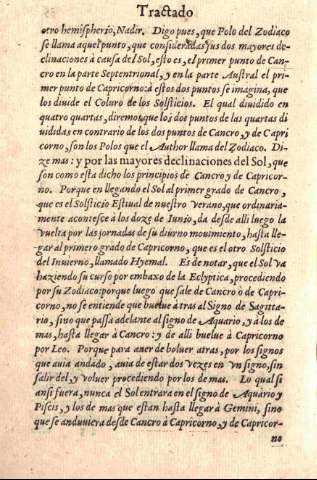 Tractado
otro hemispherio, Nadir. Digo pues, que Polo del Zodiaco
se llama aquel punto, que consideradas sus dos mayores de-
clinaciones à causa del Sol, esto es, el primer punto de Can-
cro en la parte Septentrional, y en la parte Austral el pri-
mer punto de Capricorno: à estos dos puntos se imagina, que
los diuide el Coluro de los Solsticios. El qual diuidido en
quatro quartas, diremos que los dos puntos de las quartas di
uididas en contrario de los dos puntos de Cancro, y de Capri
corno, son los Polos que el Author llama del Zodiaco. Di-
ze mas: y por las mayores declinaciones del Sol, que
son como esta dicho los principios de Cancro y de Capricor-
no. Porque en llegando el Sol al primer grado de Cancro,
que es el Solsticio Estiual de nuestro verano, que ordinaria-
mente acontesce à los doze de Iunio, da desde alli luego la
vuelta por las jornadas de su diurno mouimiento, hasta lle-
gar al primero grado de Capricorno, que es el otro Solsticio
del Inuierno, llamado Hyemal. Es de notar, que el Sol va
haziendo su curso por embaxo de la Eclyptica, procediendo
por su Zodiaco: porque luego que sale de Cancro ò de Capri-
corno, no se entiende que buelue à tras al Signo de Sagitta-
rio, sino que passa adelante al signo de Aquario, y à los de
mas, hasta llegar à Cancro: y de alli buelue à Capricorno
por Leo. Porque para auer de boluer atras, por los signos
que auia andado, auia de estar dos vezes en vn signo, sin
salir del, y voluer procediendo por los de mas. Lo qual si
ansi fuera, nunca el Sol entrara en el signo de Aquario y
Piscis, y los de mas que estan hasta llegar à Gemini, sino
que se anduuiera desde Cancro à Capricorno, y de Capricor-
no